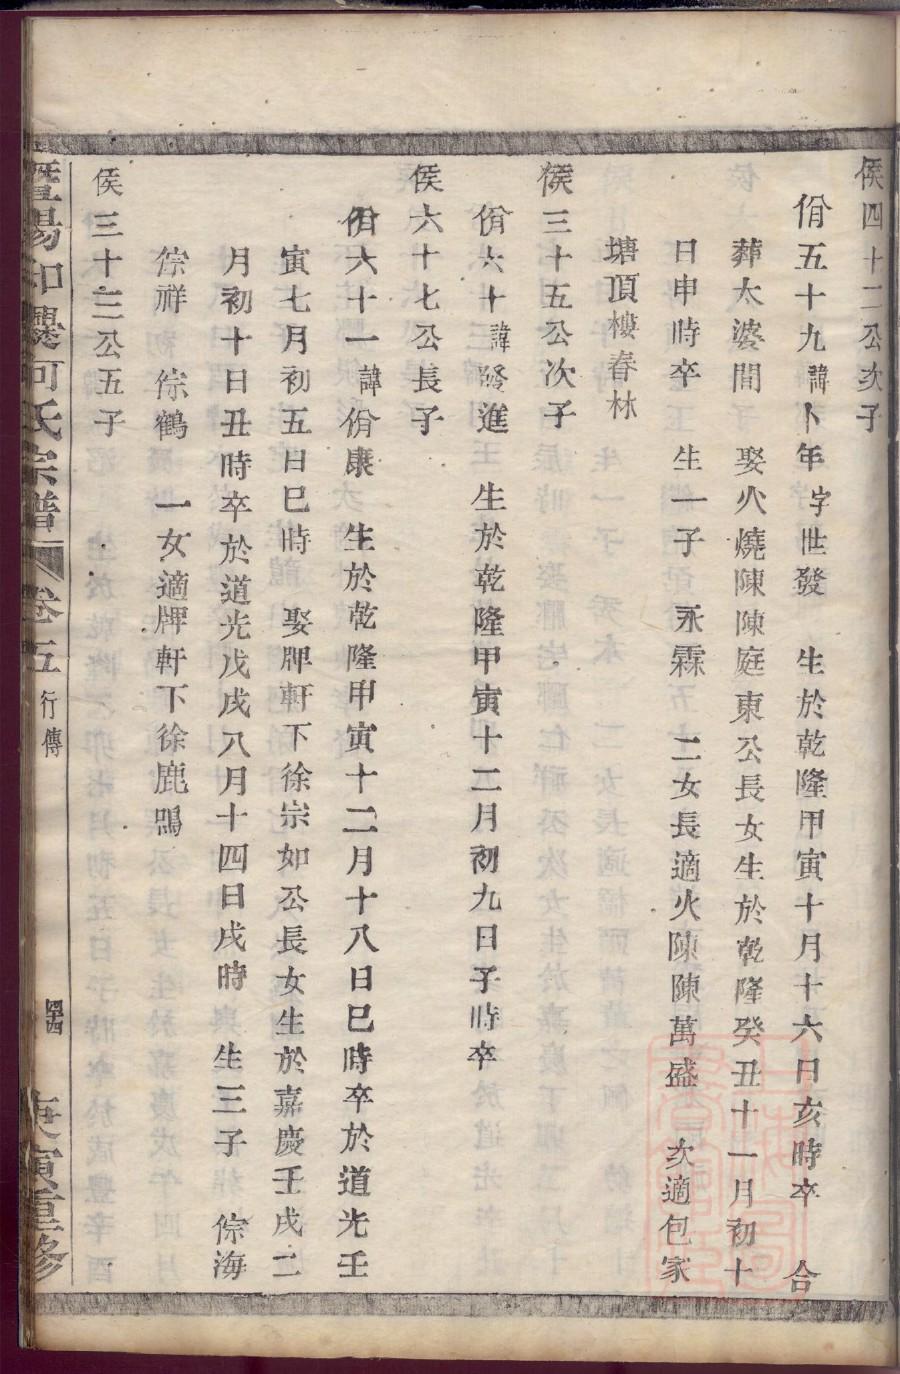 侯四十二公次子
佾五十九諱卜年字世發　生於乾隆甲寅十月十六日亥時卒　合
葬太婆間　娶火燒陳陳庭東公長女生於乾隆癸丑十一月初十
日申時卒　生一子　永霖　二女長適火陳陳萬盛　次適包家
塘頂樓春林
侯三十五公次子
佾六十諱發進　生於乾隆甲寅十二月初九日子時卒
侯六十七公長子
佾六十一諱佾康　生於乾隆甲寅十二月十八日巳時卒於道光壬
寅七月初五日巳時　娶牌軒下徐宗如公長女生於嘉慶壬戌二
月初十日丑時卒於道光戊戌八月十四日戌時　生三子　倧海
倧祥　倧鶴　一女適牌軒下徐鹿鳴
侯三十三公五子
暨陽和㶚何氏宗譜　卷五　行傳　庚寅重修